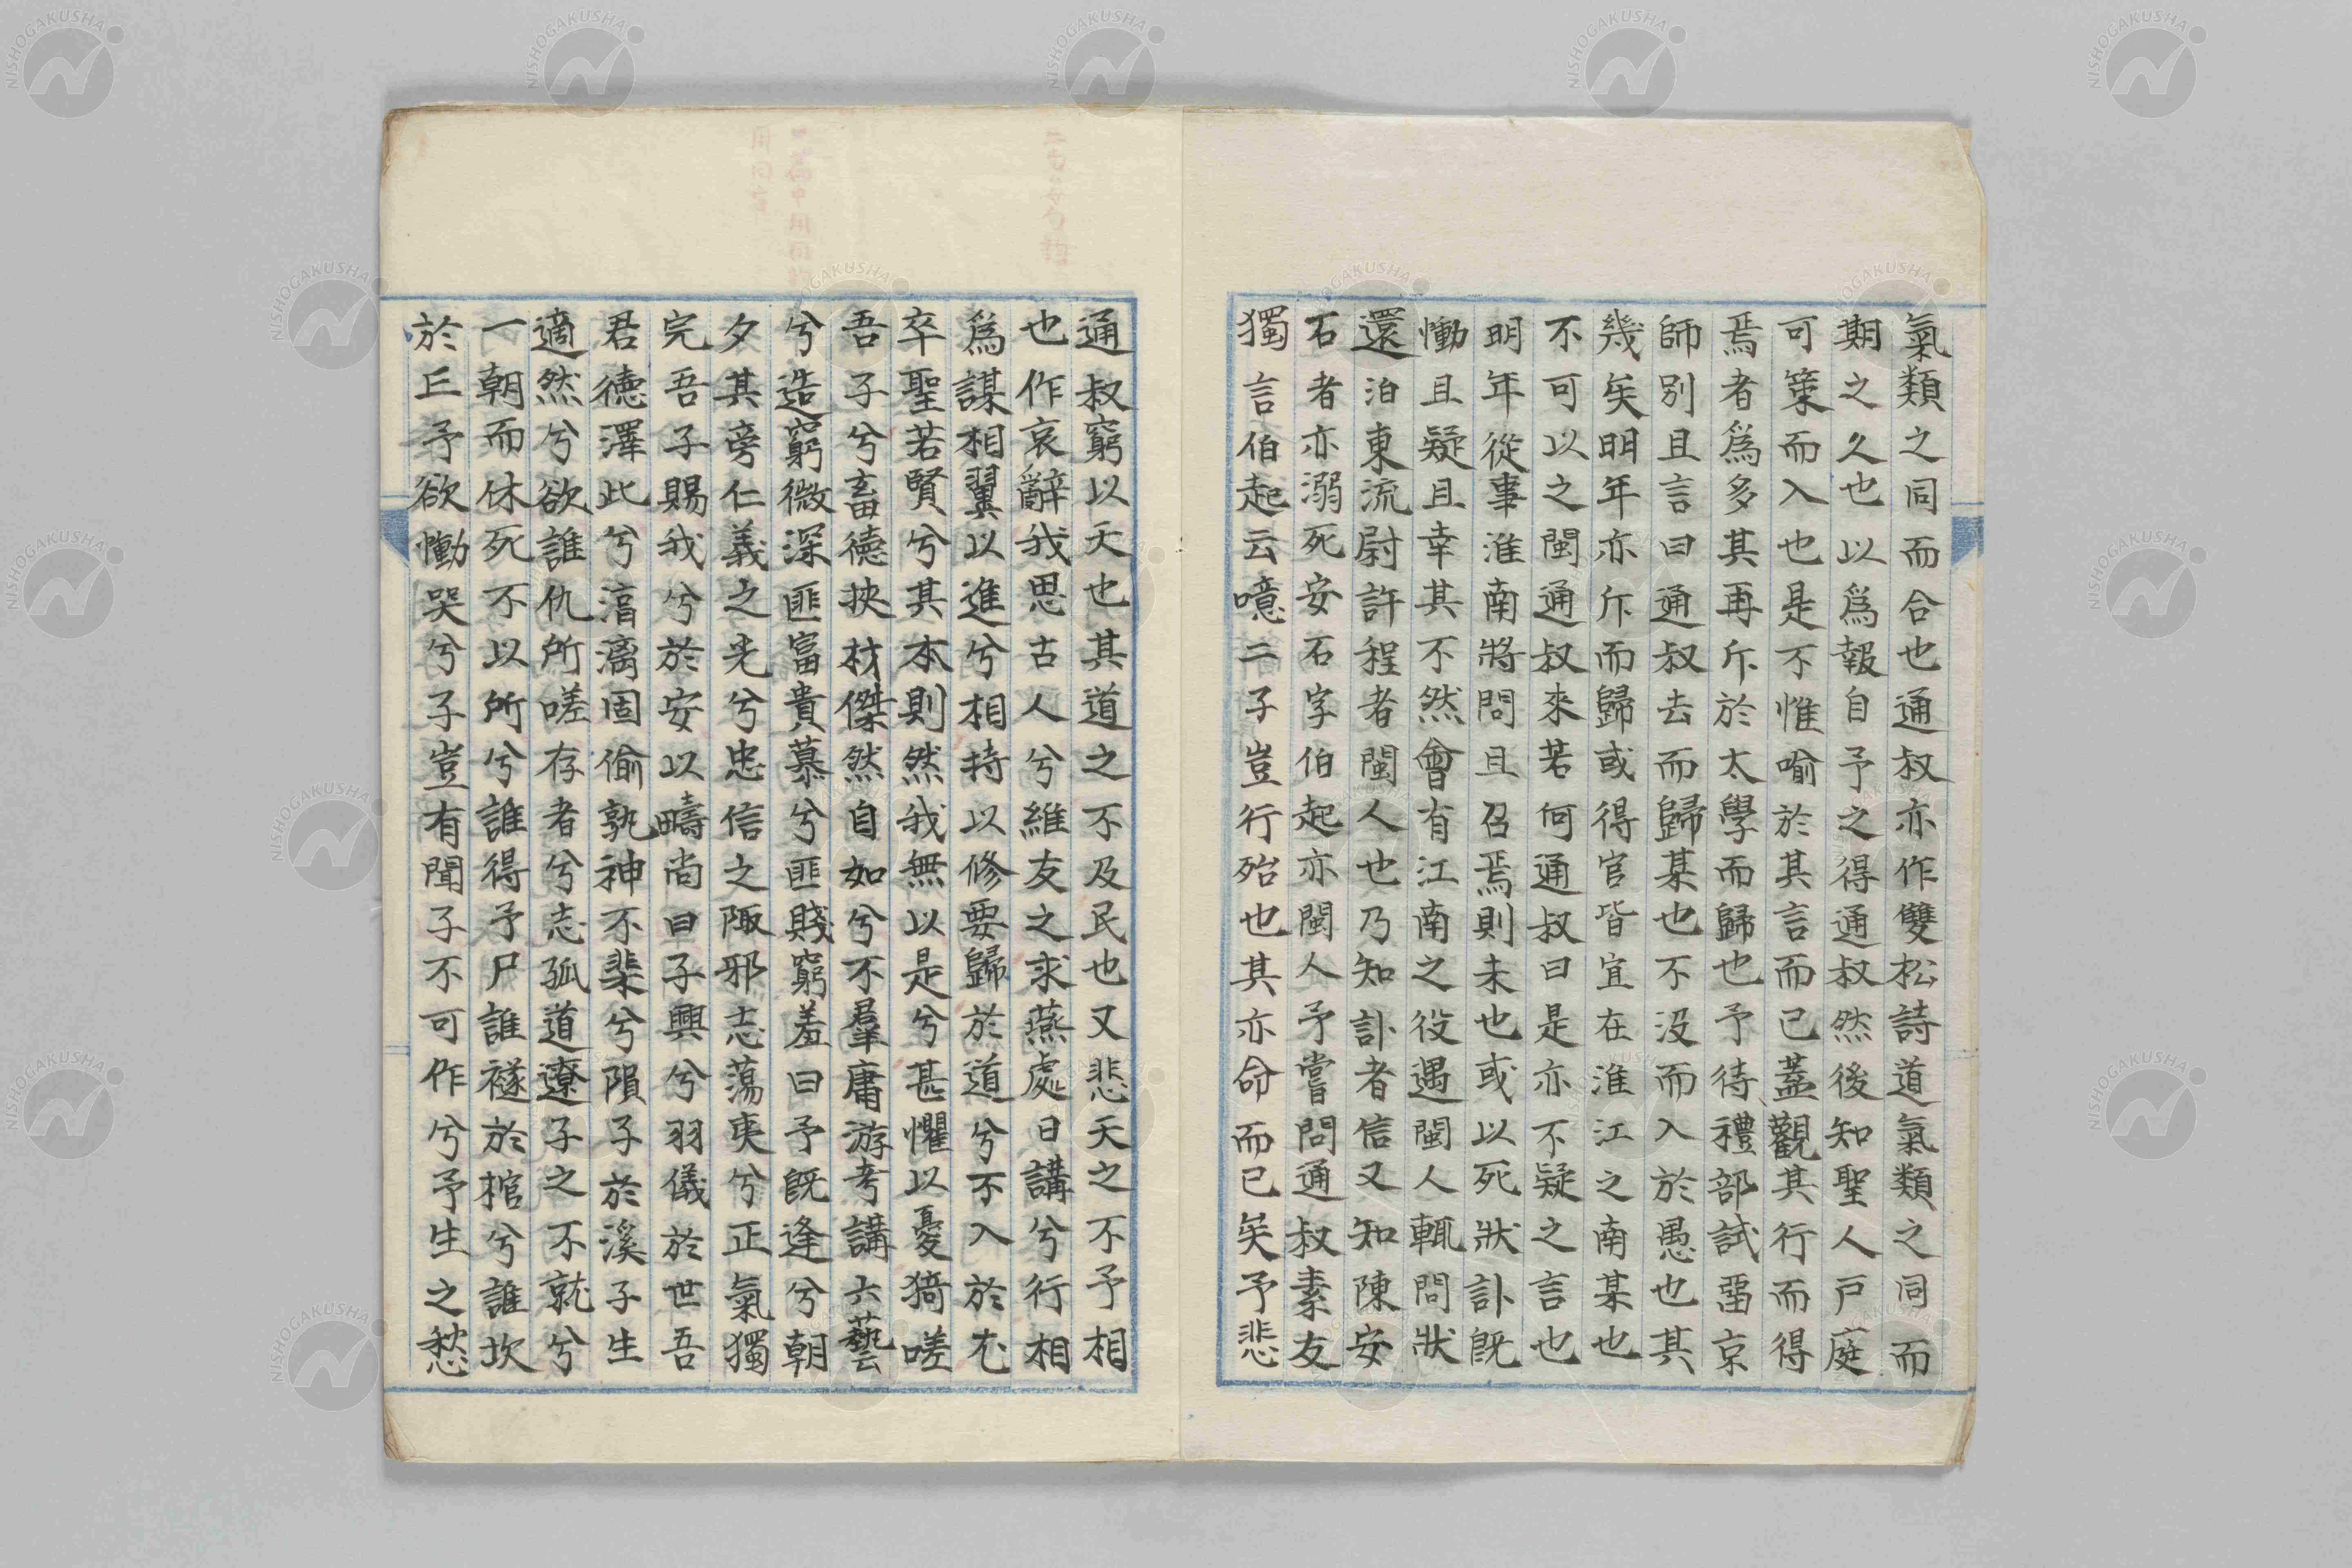 氣類之同而合也通叔亦作雙松詩道氣類之同而
期之久也以爲報自予之得通叔然後知聖人戸庭
可策而入也是不惟喻於其言而已蓋觀其行而得
焉者爲多其再斥於太學而歸也予待禮部試畱京
師別且言曰通叔去而歸某也不没而入於愚也其
幾矣明年亦斥而歸或得官皆宜在淮江之南某也
不可以之閩通叔來若何通叔曰是亦不疑之言也
明年從事淮南將問且召焉則未也或以死狀訃既
慟且疑且幸其不然會有江南之役遇閩人輒問狀
還泊東流尉許程者閩人也乃知訃者信又知陳安
石者亦溺死安石字伯起亦閩人予嘗問通叔素友
獨言伯起云噫二子豈行殆也其亦命而已矣予悲
通叔窮以天也其道之不及民也又悲天之不予相
也作哀辭我思古人兮維友之求燕處日講兮行相
爲謀相翼以進兮相持以修要歸於道兮不入於尤
卒聖若賢兮其本則然我無以是兮甚懼以憂猗嗟
吾子兮畜德挾材傑然自如兮不羣庸游考講六藝
兮造窮微深匪富貴慕兮匪賤窮羞曰予既逢兮朝
夕其旁仁義之光兮忠信之陬邪志蕩夷兮正氣獨
完吾子賜我兮於安以疇尚曰子興兮羽儀於世吾
君德澤此兮湻漓固偷孰神不棐兮隕子於溪子生
適然兮欲誰仇所嗟存者兮志孤道遼子之不就兮
一朝而休死不以所兮誰得予尸誰襚於棺兮誰坎
於丘予欲慟哭兮子豈有聞子不可作兮予生之愁
NISHOGAKUSHA